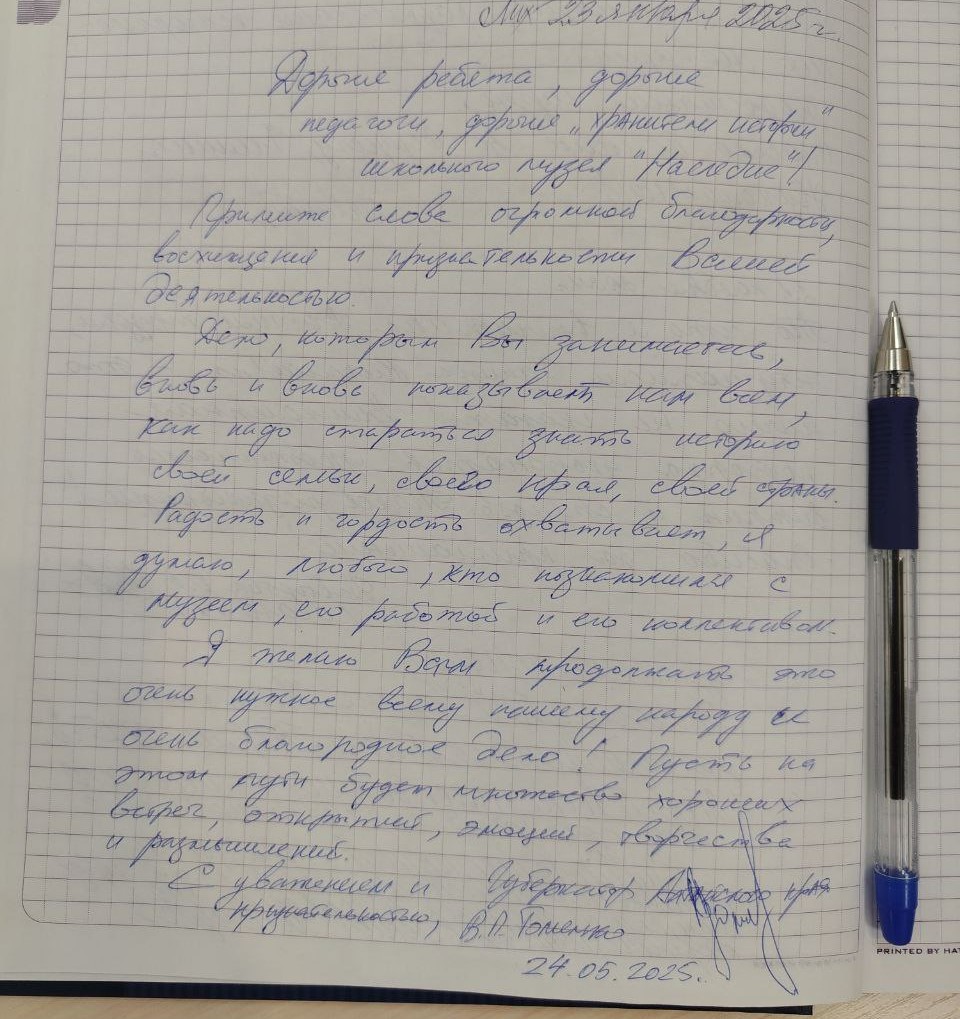 23 января 2025 г.
Дорогие ребята, дорогие
педагоги, дорогие „хранители истории"
школьного музея "Наследие"!
Примите слова огромной благодарности,
восхищения и признательности Вашей
деятельностью.
Дело, которым Вы занимаетесь,
вновь и вновь показывает нам всем,
как надо стараться знать историю
своей семьи, своего края, своей страны.
Радость и гордость охватывает, я
думаю, любого, кто познакомился с
музеем, его работой и его коллективом.
Я желаю Вам продолжать это
очень нужное всему нашему народу и
очень благородное дело! Пусть на
этом пути будет множество хороших
встреч, открытий, эмоций, творчества
и размышлений.
С уважением и Губернатор Алтайского края
признательностью, В.П. Томенко
24.05.2025.
PRINTED BY HAT